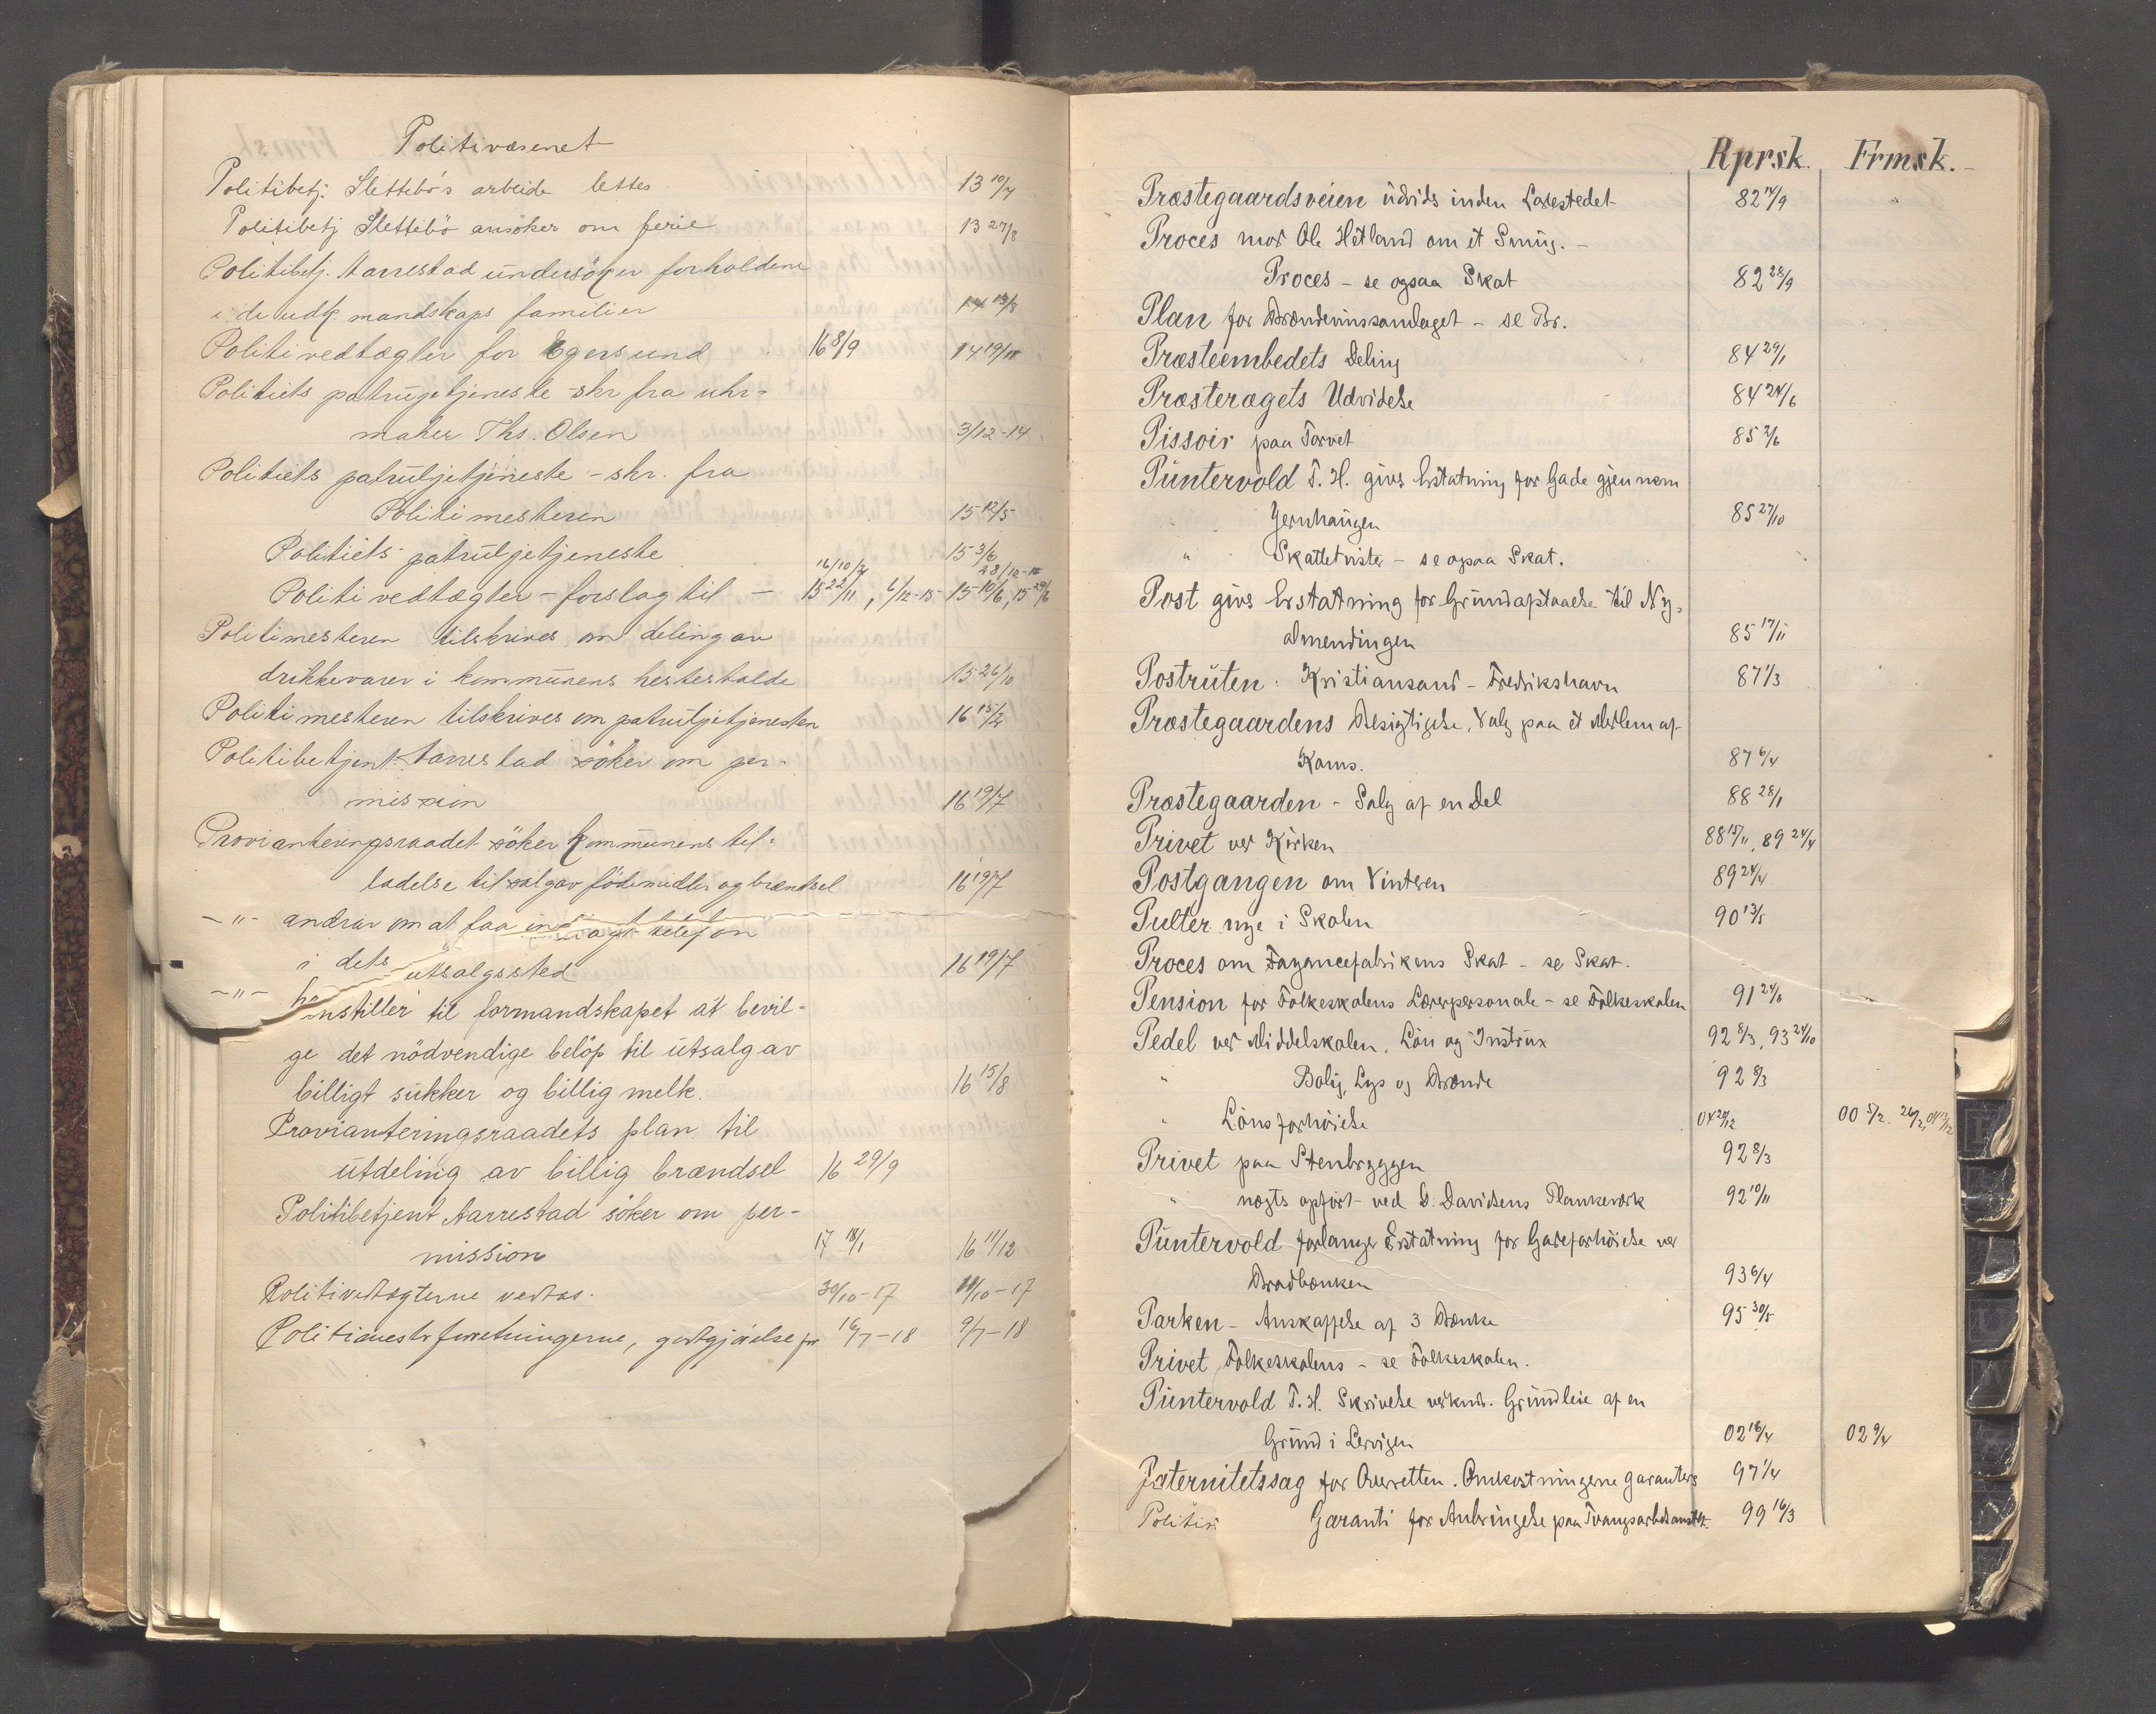 Politivæsenet
Politibetj. Slettebö's arbeide lettes 13 10/4
Politibetj Slettebö ansöker om ferie 13 27/8
Politibetj. Aarrestad undersöker forholdene
i de udk. mandskaps familier 14 13/8
Politivedtægter for Egersund 16 8/9 14 19/11
Politiets patruljetjeneste - skr fra uhr-
maker Ths. Olsen 3/12-14
Politiets patruljetjeneste - skr. fra
Politimesteren 15 12/5
Politiets patruljetjeneste 15 3/6
Politivedtægter - forslag til - 15 22/11, 6/12-15 15 10/6, 15 29/6
Politimesteren tilskrives om deling av
drikkevarer i kommunens hestestalde 15 26/10
Politimesteren tilskrives om patruljetjenesten 16 15/2
Politibetjent Aarrestad söker om per-
mission 16 19/7
Provianteringsraadet söker kommunens til-
ladelse til salg av födemidler og brændsel 16 19/7
-"- andrar om at faa indlagt telefon
i dets utsalgssted 16 19/7
-"- henstiller til formandskapet at bevil-
ge det nödvendige belöp til utsalg av
billigt sukker og billig melk. 16 15/8
Provianteringsraadets plan til
utdeling av billig brændsel 16 29/9
Politibetjent Aarrestad söker om per-
mission 17 18/1 16 11/12
Politivedtægterne vedtas. 30/10-17 11/10-17
Politimesterforretningerne, godtgjörelse for 16/7-18 9/7-18
Rprsk. Frmsk.
Præstegaardsveien udvids inden Ladestedet 82 14/9
Proces mod Ole Hetland om et Smug. -
Proces - se ogsaa Skat 82 28/9
Plan for Brændevinssamlaget - se Br.
Præsteembedets Deling 84 29/1
Præsteragets Udvidelse 84 24/6
Pissoir paa Torvet 85 2/6
Puntervold T. H. givs Erstatning for Gade gjennem
Jernhaugen 85 27/10
" Skattetvister - se ogsaa Skat.
Post givs Erstatning for Grundafstaaelse til Ny-
almendingen 85 17/11
Postruten: Kristiansand - Fredrikshavn 87 1/3
Præstegaardens Besigtigelse, Valg paa et Medlem af
Koms. 87 6/4
Præstegaarden - Salg af en Del 88 28/1
Privet ved Kirken 88 15/11, 89 24/4
Postgangen om Vinteren 89 24/4
Pulter nye i Skolen 90 13/5
Proces om Fayancefabrikens Skat - se Skat.
Pension for Folkeskolens Lærerpersonale - se Folkeskolen 91 24/6
Pedel ved Middelskolen. Lön og Instrux 92 8/3, 93 24/10
" Bolig, Lys og Brænde 92 8/3
" Lönsforhöielse 04 29/12 00 5/2. 26/2, 04 13/12
Privet paa Stenbryggen 92 8/3
" nægts opfört ved D. Davidsens Plankeværk 92 10/11
Puntervold forlanger Erstatning for Gadeforhöielse ved
Bradbænken 93 6/4
Parken - Anskaffelse af 3 Bænke 95 30/5
Privet, Folkeskolens - se Folkeskolen.
Puntervold T. H. Skrivelse vedkmd. Grundleie af en
Grund i Lervigen 02 18/4 02 9/4
Paternitetssag for Overretten. Omkostningerne garanters 97 1/4
Politiv. Garanti for Anbringelse paa Tvangsarbeidsanstalt. 99 16/3